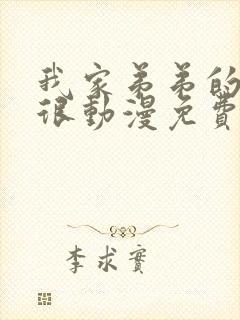 我家弟弟的
很動漫免費
李求實